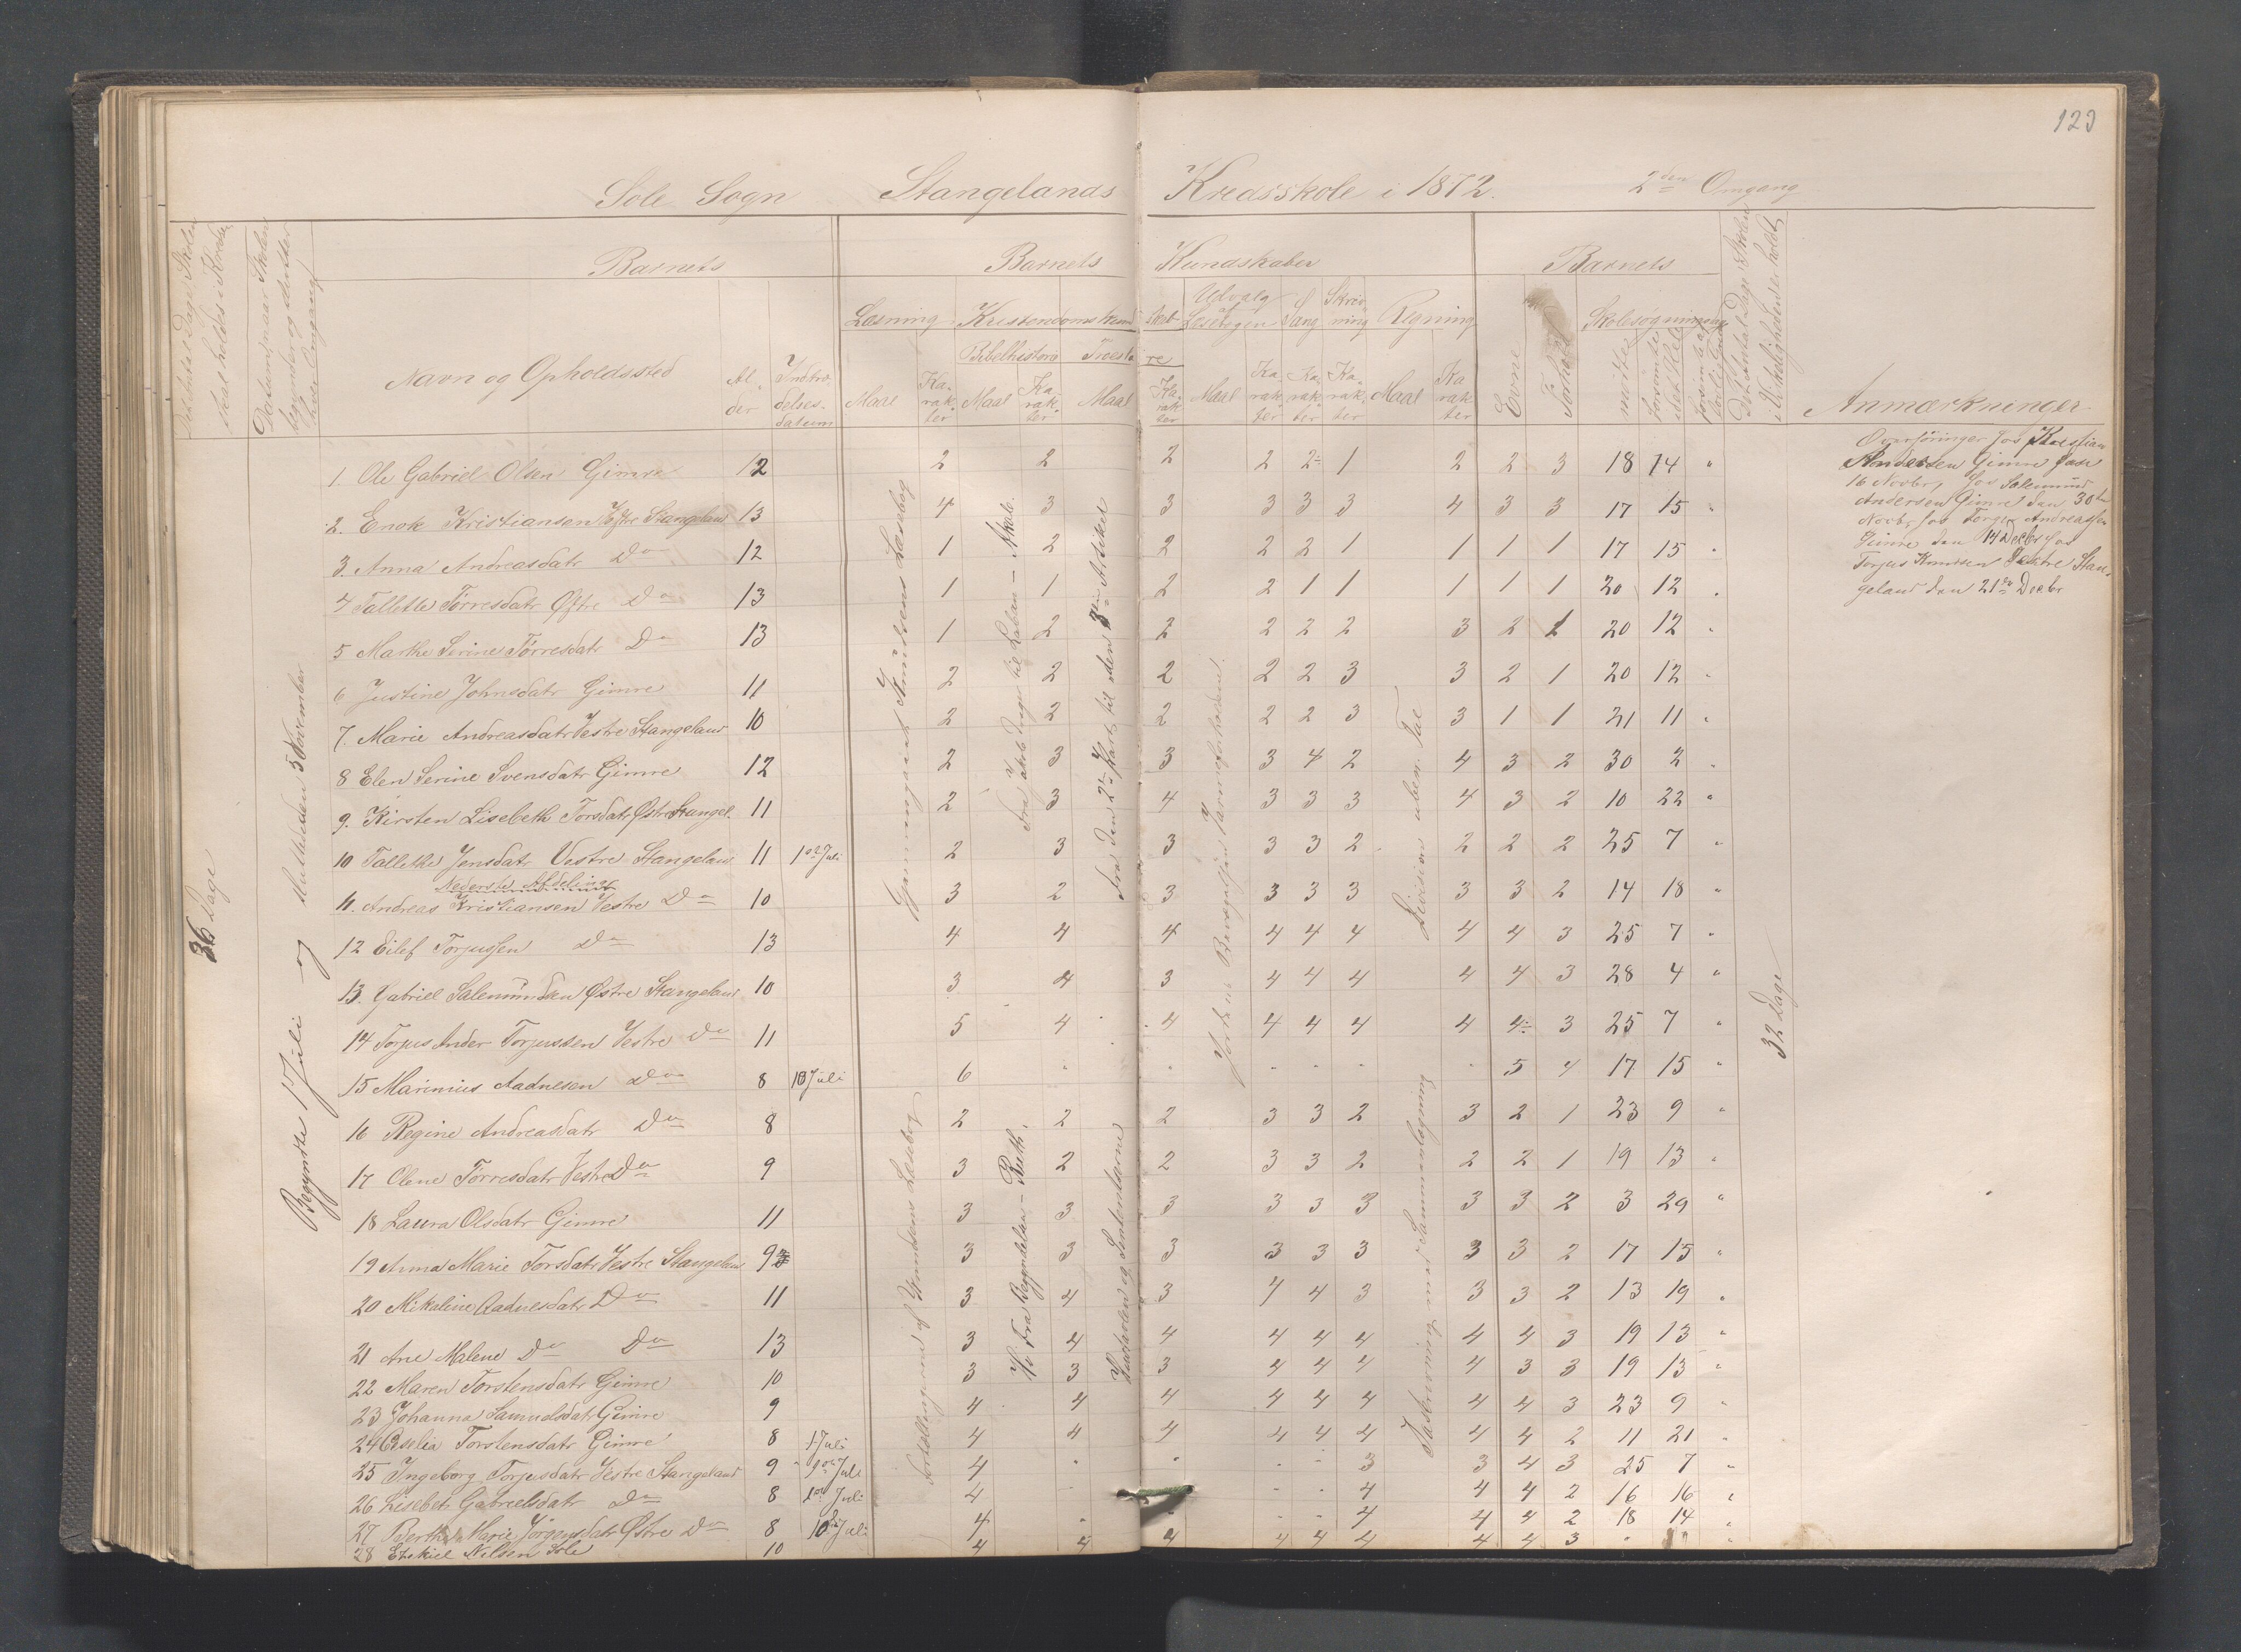 123
Sole Sogn Stangelands Kredsskole i 1872. 2den Omgang
Det Antal Dage Skolen skal holdes i Kredsen
Datum naar Skolen begynder og slutter hver Omgang
Barnets
Navn og Opholdssted
Alder
Indtrædelsesdatum
Barnets Kundskaber
Læsning
Kristendomskundskab
Bibelhistorie
Troeslære
Udvalg af Læsebogen
Sang
Skrivning
Regning
Maal Karakter Maal Karakter Maal Karakter Maal Karakter Karakter Karakter Maal Karakter
Barnets
Evne
Forhold
Skolesøgningsdage
mødte
forsømte i det Hele
forsømte af lovlig Grund
Det Antal Dage Skolen i Virkeligheden er holdt
Anmærkninger
36 Dage
Begyndte 1 Juli og sluttede den 5 November
32 Dage
1. Ole Gabriel Olsen Gimre 12 2 2 2 2 2 1 2 2 3 18 14 "
2. Enok Kristiansen Vestre Stangeland 13 4 3 3 3 3 3 4 3 3 17 15 "
3. Anna Andreasdatr Do 12 1 2 2 2 2 1 1 1 1 17 15 "
4 Tallette Tørresdatr Østre Do 13 1 1 2 2 1 1 1 1 1 20 12 "
5 Marthe Serine Tørresdatr Do 13 1 2 2 2 2 2 3 2 1 20 12 "
6 Justine Johnsdatr Gimre 11 2 2 2 2 2 3 3 2 1 20 12 "
7. Marie Andreasdatr Vestre Stangeland 10 2 2 2 2 2 3 3 1 1 21 11 "
8 Elen Serine Svensdatr Gimre 12 2 3 3 3 4 2 4 3 2 30 2 "
9. Kirsten Lisebeth Torsdatr Østre Stangel. 11 2 3 4 3 3 3 4 3 2 10 22 "
10 Tallethe Jensdatr Vestre Stangeland 11 1ste Juli 2 3 3 3 3 2 2 2 2 25 7 "
Nederste Afdeling
11. Andreas Kristiansen Vestre Do 10 3 2 3 3 3 3 3 3 2 14 18 "
12 Eilef Torjussen Do 13 4 4 4 4 4 4 4 4 3 25 7 "
13. Gabriel Salemundsen Østre Stangeland 10 3 4 3 4 4 4 4 4 3 28 4 "
14 Torjus Ander Torjussen Vestre Do 11 5 4 4 4 4 4 4 4 3 25 7 "
15 Marinius Aadnesen Do 8 18 Juli 6 " " " " " " 5 4 17 15 "
16 Regine Andreasdatr Do 8 2 2 2 3 3 2 3 2 1 23 9 "
17 Olene Tørresdatr Vestre Do 9 3 2 2 3 3 2 2 2 1 19 13 "
18 Laura Olsdatr Gimre 11 3 3 3 3 3 3 3 3 2 3 29 "
19 Anna Marie Torsdatr Vestre Stangeland 9 3 3 3 3 3 3 3 3 2 17 15 "
20 Mikaline Aadnesdatr Do 11 3 4 3 4 4 3 3 3 2 13 19 "
21 Ane Malene Do Do 13 3 4 4 4 4 4 4 4 3 19 13 "
22 Maren Torstensdatr Gimre 10 3 3 3 4 4 4 4 3 3 19 13 "
23 Johanna Samuelsdatr Gimre 9 4 4 4 4 4 4 4 4 3 23 9 "
24 Oselia Torstensdatr Gimre 8 1 Juli 4 4 4 4 4 4 4 4 2 11 21 "
25 Ingeborg Torjusdatr Vestre Stangeland 9 1ste Juli 4 " " " " 3 3 4 3 25 7 "
26 Lisebet Gabrielsdatr Do 8 1ste Juli 4 " " " " 4 4 4 2 16 16 "
27 Berthe Marie Jørgensdatr Østre Do 8 10de Juli 4 " " " " 4 4 4 2 18 14 "
28 Eliskiel Nilsen Sole 10 4 4 4 4 4 4 4 4 3 " " "
Gjennemgaaet Knudsens Læsebog
Fra Jakob drager til Laban – Akab.
Fra den 2den Part til den 3die Artikel
Division uben. Tal
Fortællingerne af Knudsens Læsebog
Fra Begyndelsen – Ruth.
Sakramenterne
Tavleregning med Sammenlægning
Overhøringer hos Kristian
Andersen Gimre den
16 Novbr, hos Salemund
Andersen Gimre den 30te
Novbr, hos Torger Andreassen
Gimre den 14 Decbr hos
Torjus Knutsen Vestre Stan-
geland den 21de Decbr